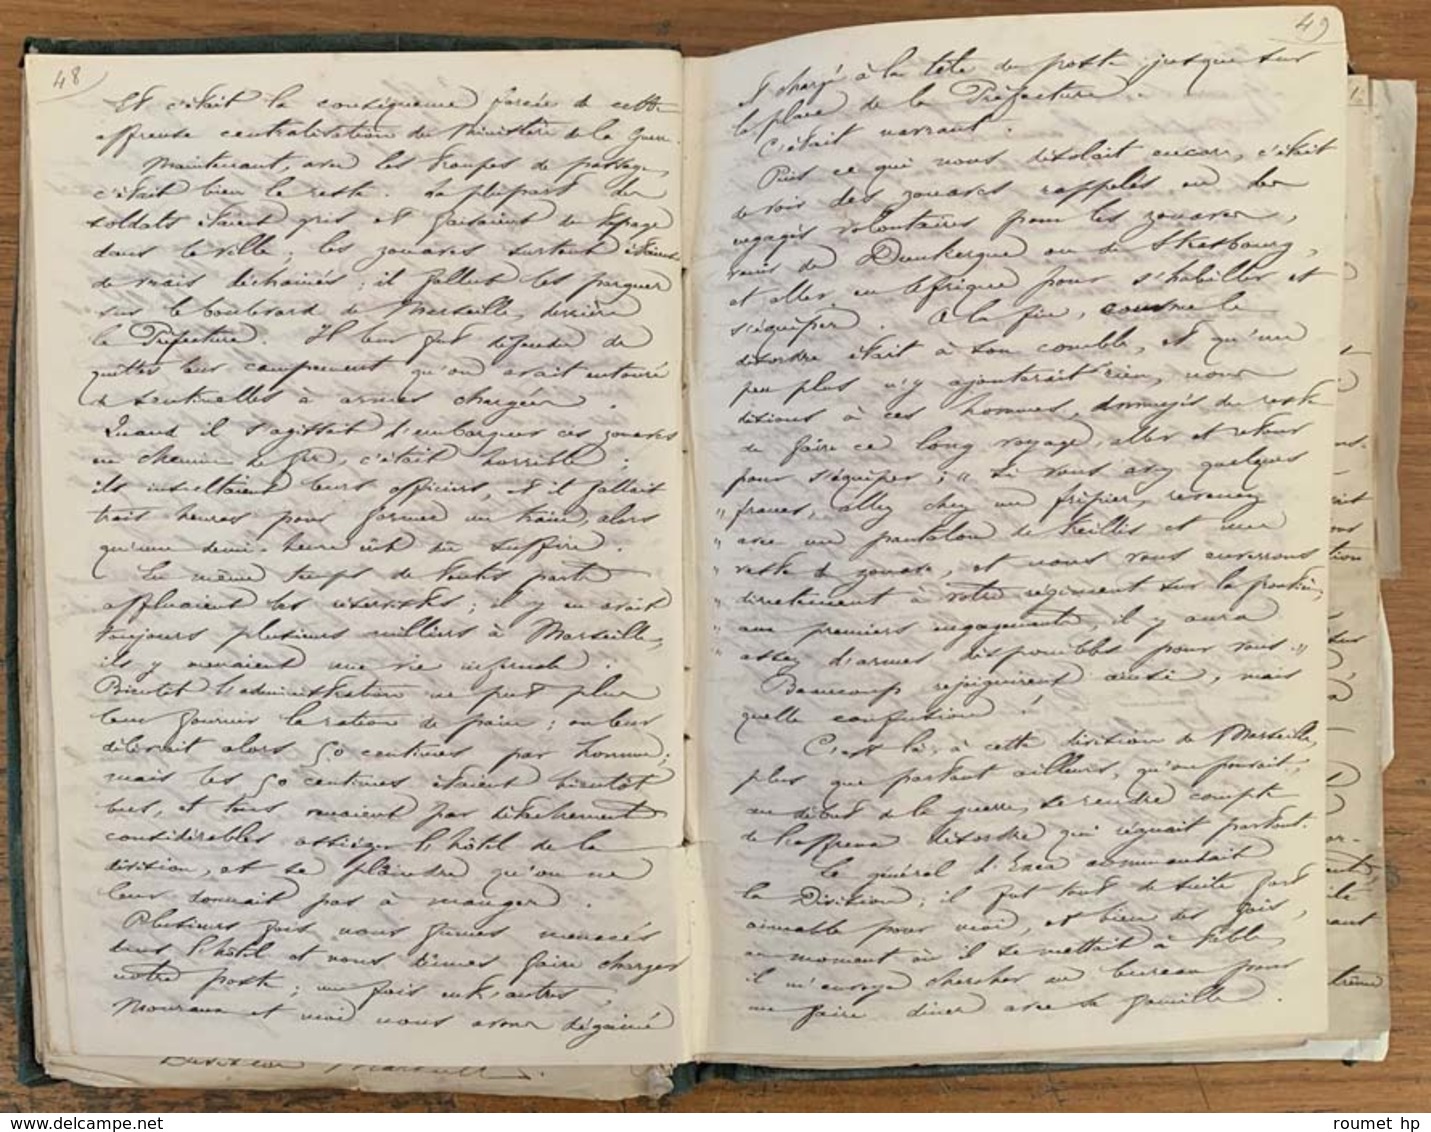 48
Et c'était la conséquence forcée de cette
affreuse centralisation du Ministère de la Guerre.
Maintenant, avec les troupes de passage,
c'était bien le reste. La plupart des
soldats étaient gris et faisaient du tapage
dans la ville ; les zouaves surtout étaient
de vrais déchainés ; il fallut les parquer
sur le boulevard de Marseille, derrière
la Préfecture. Il leur fut défendu de
quitter leur campement qu'on avait entouré
de sentinelles à armes chargées.
Quand il s'agissait d'embarquer ces zouaves
en chemin de fer, c'était horrible ;
ils insultaient leurs officiers, et il fallait
trois heures pour former un train, alors
qu'une demi-heure eût dû suffire.
En même temps de toutes parts
affluaient les réservistes ; il y en avait
toujours plusieurs milliers à Marseille,
ils y menaient une vie infernale.
Bientôt l'administration ne put plus
leur fournir la ration de pain ; on leur
délivrait alors 50 centimes par homme ;
mais les 50 centimes étaient bientôt
bus, et tous venaient par détachements
considérables assiéger l'hôtel de la
division, et se plaindre qu'on ne
leur donnait pas à manger.
Plusieurs fois nous fûmes menacés
dans l'hôtel et nous dûmes faire charger
notre poste ; une fois entr'autres,
et moi nous avons dégainé
49
et chargé à la tête du poste jusque sur
la place de la Préfecture.
C'était navrant.
Puis ce qui nous désolait encore, c'était
de voir des zouaves rappelés ou des
engagés volontaires pour les zouaves,
venir de Dunkerque ou de Strasbourg,
et aller en Afrique pour s'habiller et
s'équiper. A la fin, comme le
désordre était à son comble, et qu'un
peu plus n'y ajouterait rien, nous
disions à ces hommes, ennuyés du reste
de faire ce long voyage, aller et retour
pour s'équiper ; " Si vous avez quelques
" francs, allez chez un fripier, revenez
" avec un pantalon de treillis et une
" veste de zouave, et nous vous enverrons
" directement à votre régiment sur la frontière,
" aux premiers engagements, il y aura
" assez d'armes disponibles pour vous. "
Beaucoup rejoignirent ainsi, mais
quelle confusion !
C'est là, à cette division de Marseille,
plus que partout ailleurs, qu'on pouvait,
au début de la guerre, se rendre compte
de l'affreux désordre qui régnait partout.
Le général d'Exea commandait
la Division ; il fut tout de suite fort
aimable pour moi, et bien des fois,
au moment où il se mettait à table,
il m'envoya chercher au bureau pour
me faire dîner avec sa famille.
Division
roumet hp